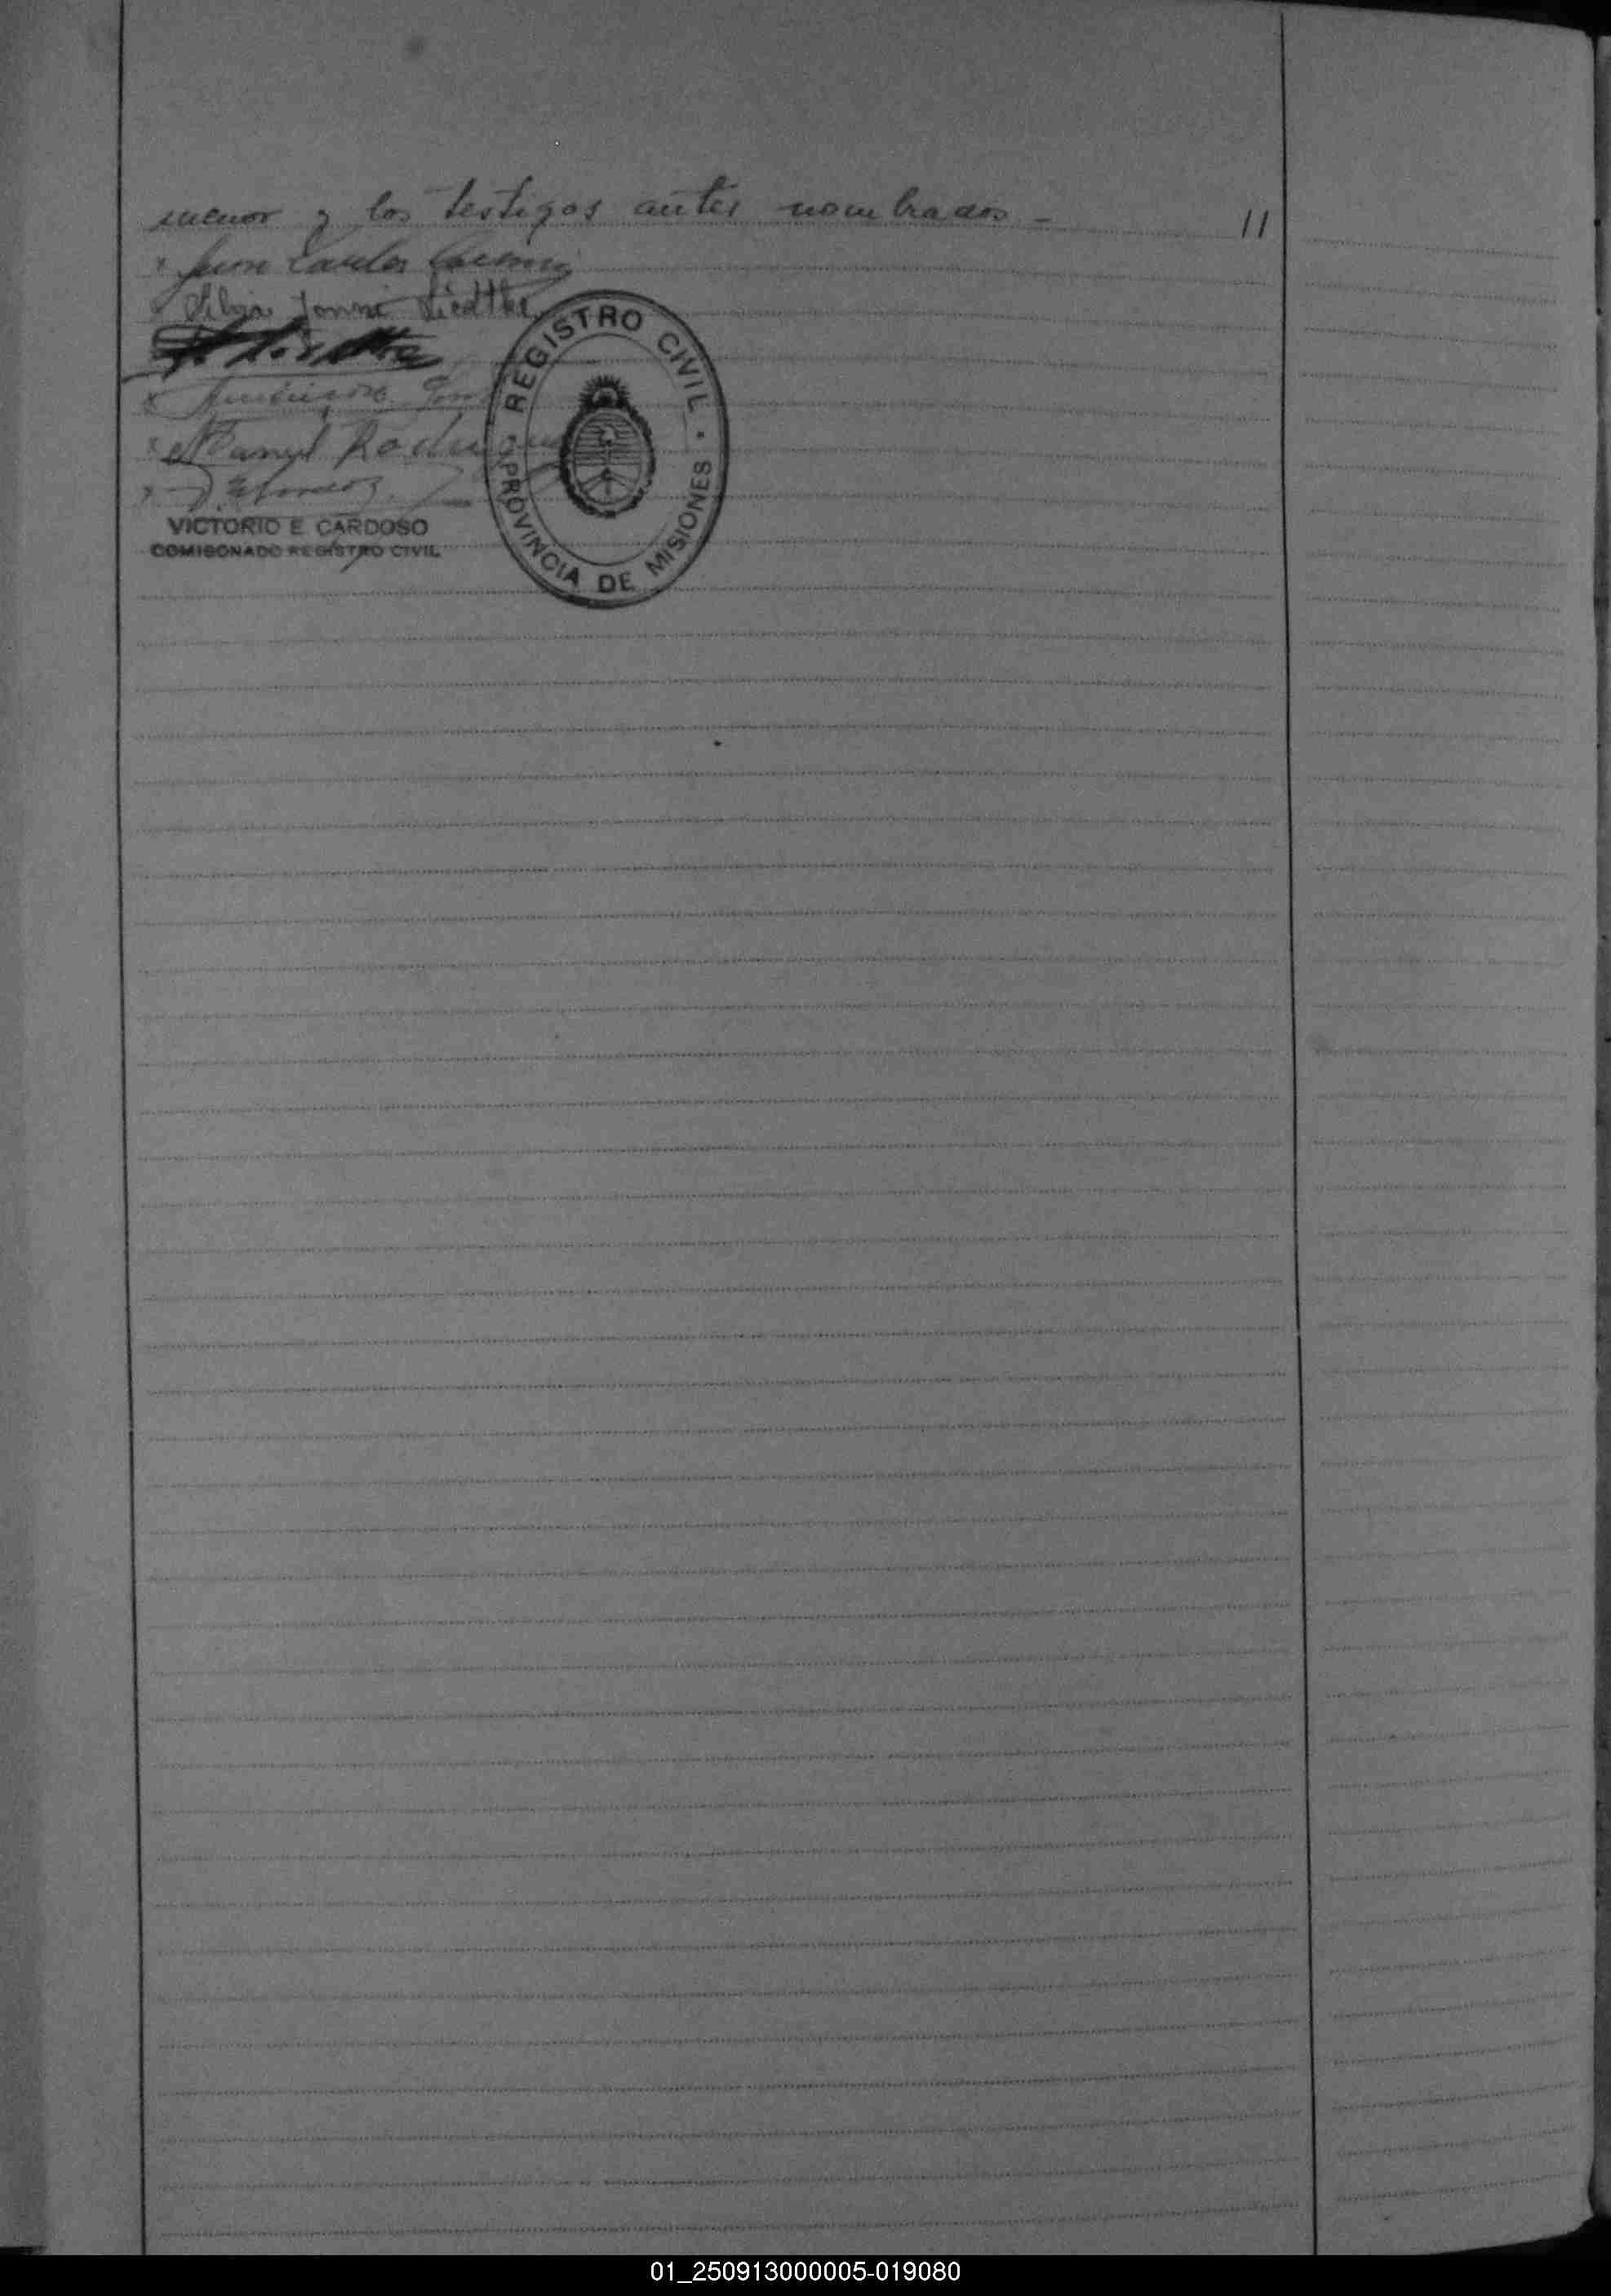 menor y los testigos antes nombrados - 11
x Juan Carlos
Silvia Liedtke
x
x Manuel Rodriguez
x
VICTORIO E. CARDOSO
COMISONADO REGISTRO CIVIL
REGISTRO CIVIL · PROVINCIA DE MISIONES
01_250913000005-019080